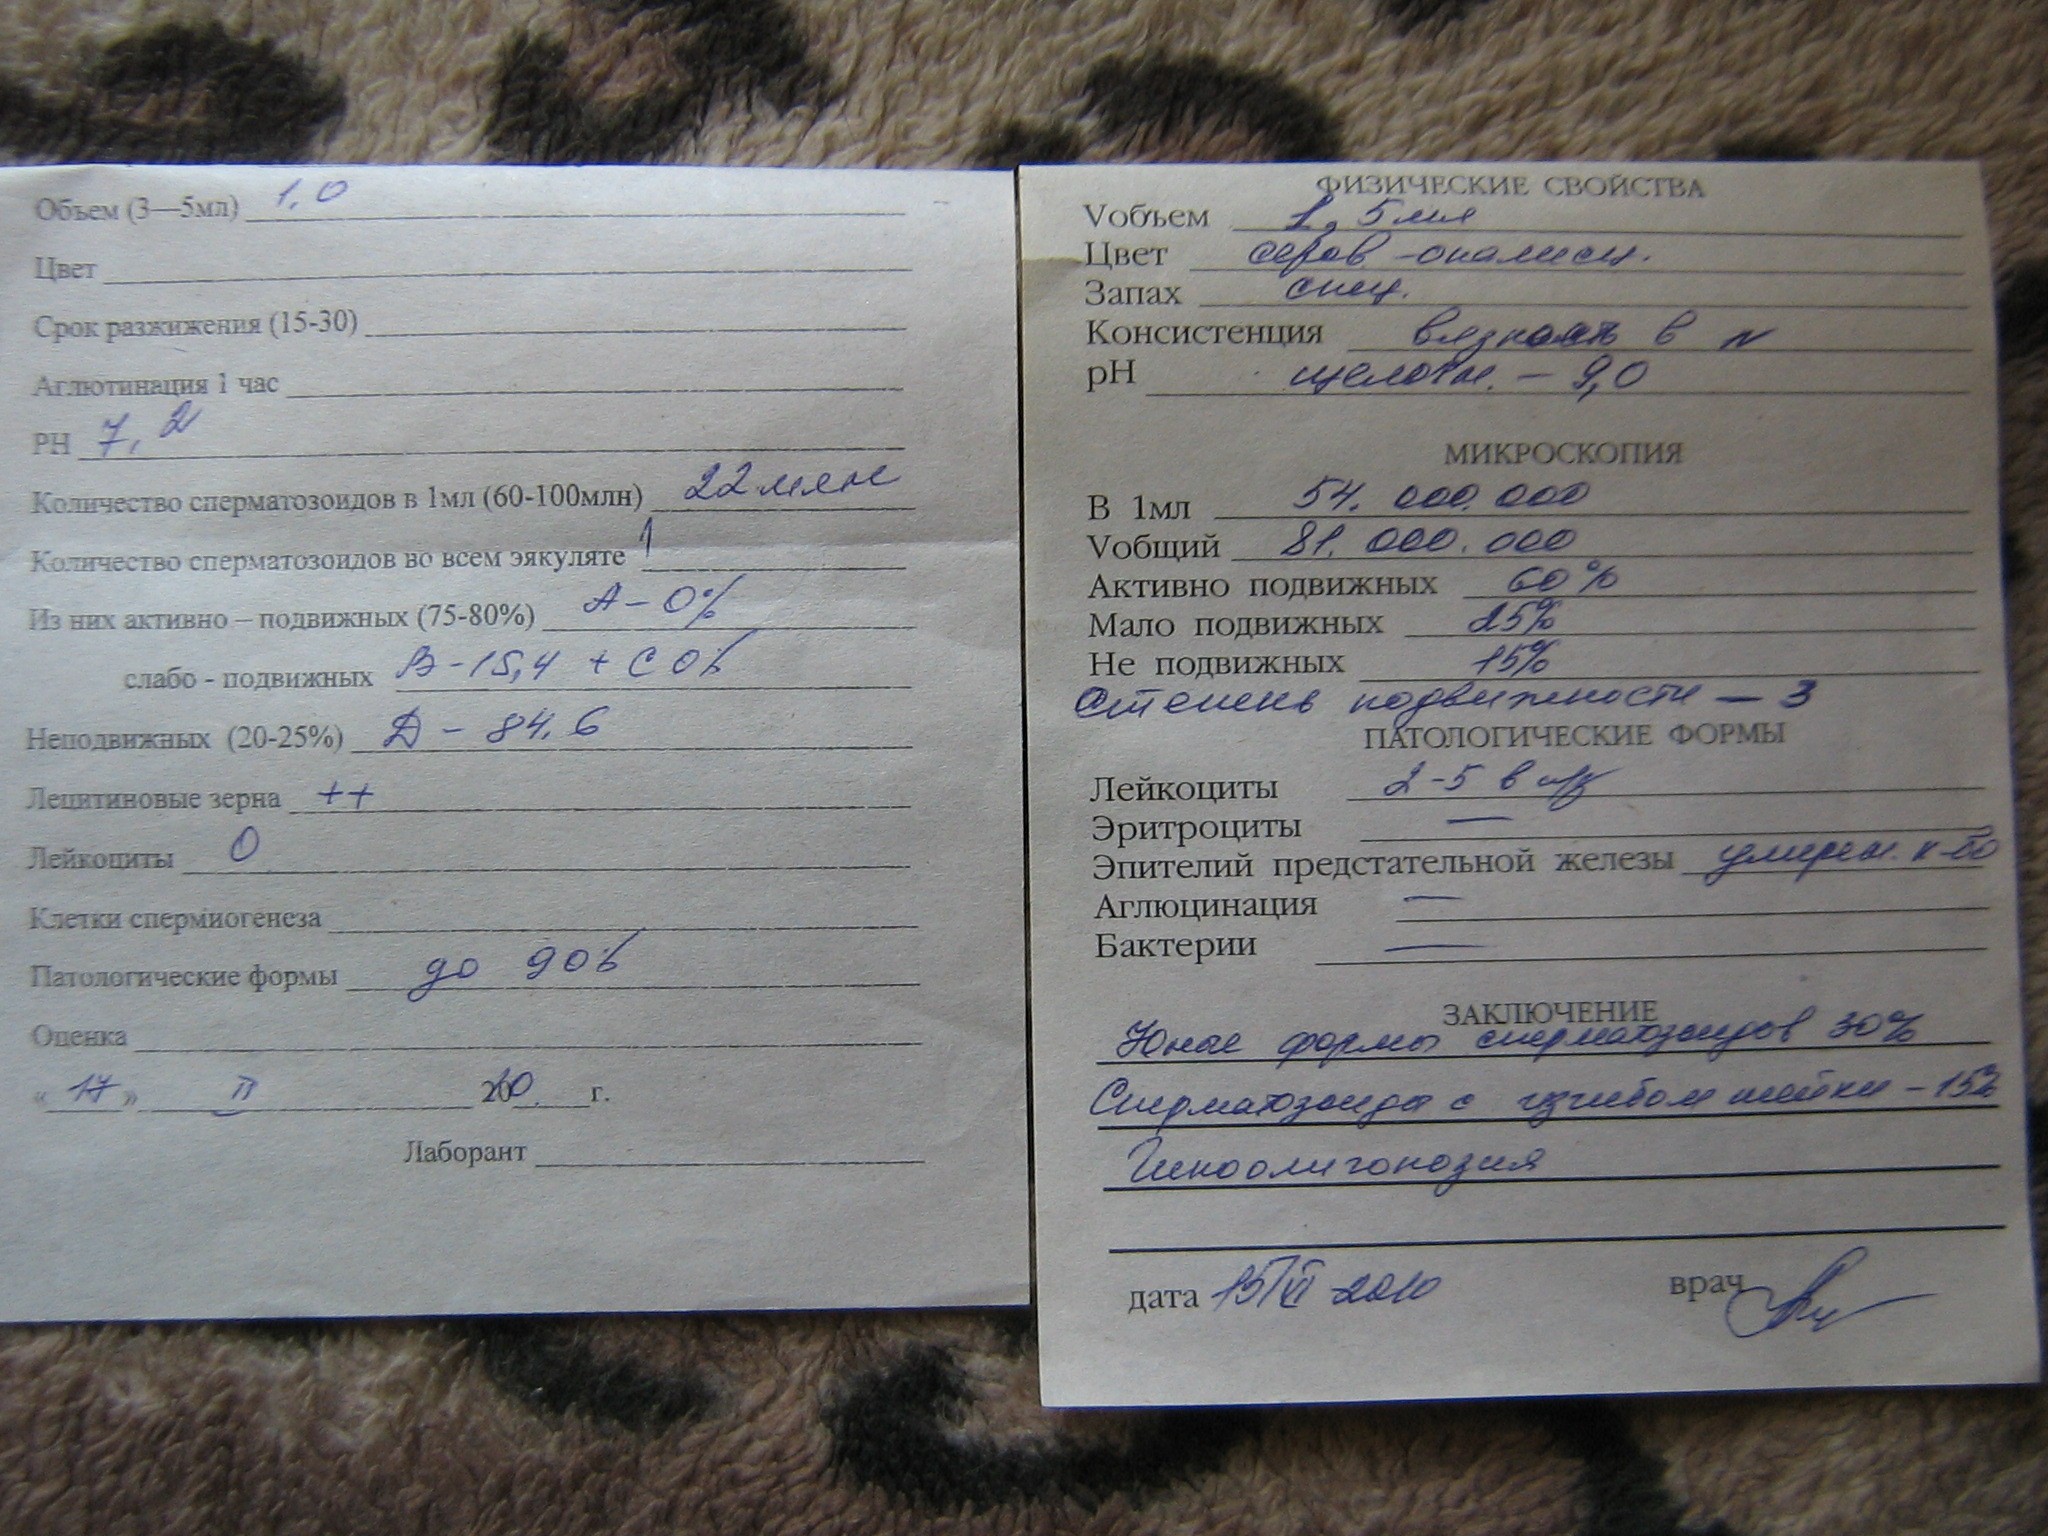 Объем (3—5мл) 1,0
Цвет
Срок разжижения (15-30)
Аглютинация 1 час
РН 7,2
Количество сперматозоидов в 1мл (60-100млн) 22 млн
Количество сперматозоидов во всем эякуляте
Из них активно – подвижных (75-80%) А – 0%
слабо - подвижных В - 15,4 + С 0%
Неподвижных (20-25%) Д – 84,6
Лецитиновые зерна ++
Лейкоциты 0
Клетки спермиогенеза
Патологические формы до 90%
Оценка
« 17 » II 2010 г.
Лаборант
ФИЗИЧЕСКИЕ СВОЙСТВА
Vобъем 1,5 мл
Цвет серов-опалесц.
Запах спец.
Консистенция вязкость в N
рН щелочн. – 9,0
МИКРОСКОПИЯ
В 1мл 54.000.000
Vобщий 81.000.000
Активно подвижных 60%
Мало подвижных 25%
Не подвижных 15%
Степень подвижности – 3
ПАТОЛОГИЧЕСКИЕ ФОРМЫ
Лейкоциты 2-5 в п/з
Эритроциты —
Эпителий предстательной железы умерен. к-во
Аглюцинация —
Бактерии —
ЗАКЛЮЧЕНИЕ
Юные формы сперматозоидов 30%
Сперматозоиды с изгибом шейки – 15%
Гипоолигопозия
дата 15/VI 2010 врач